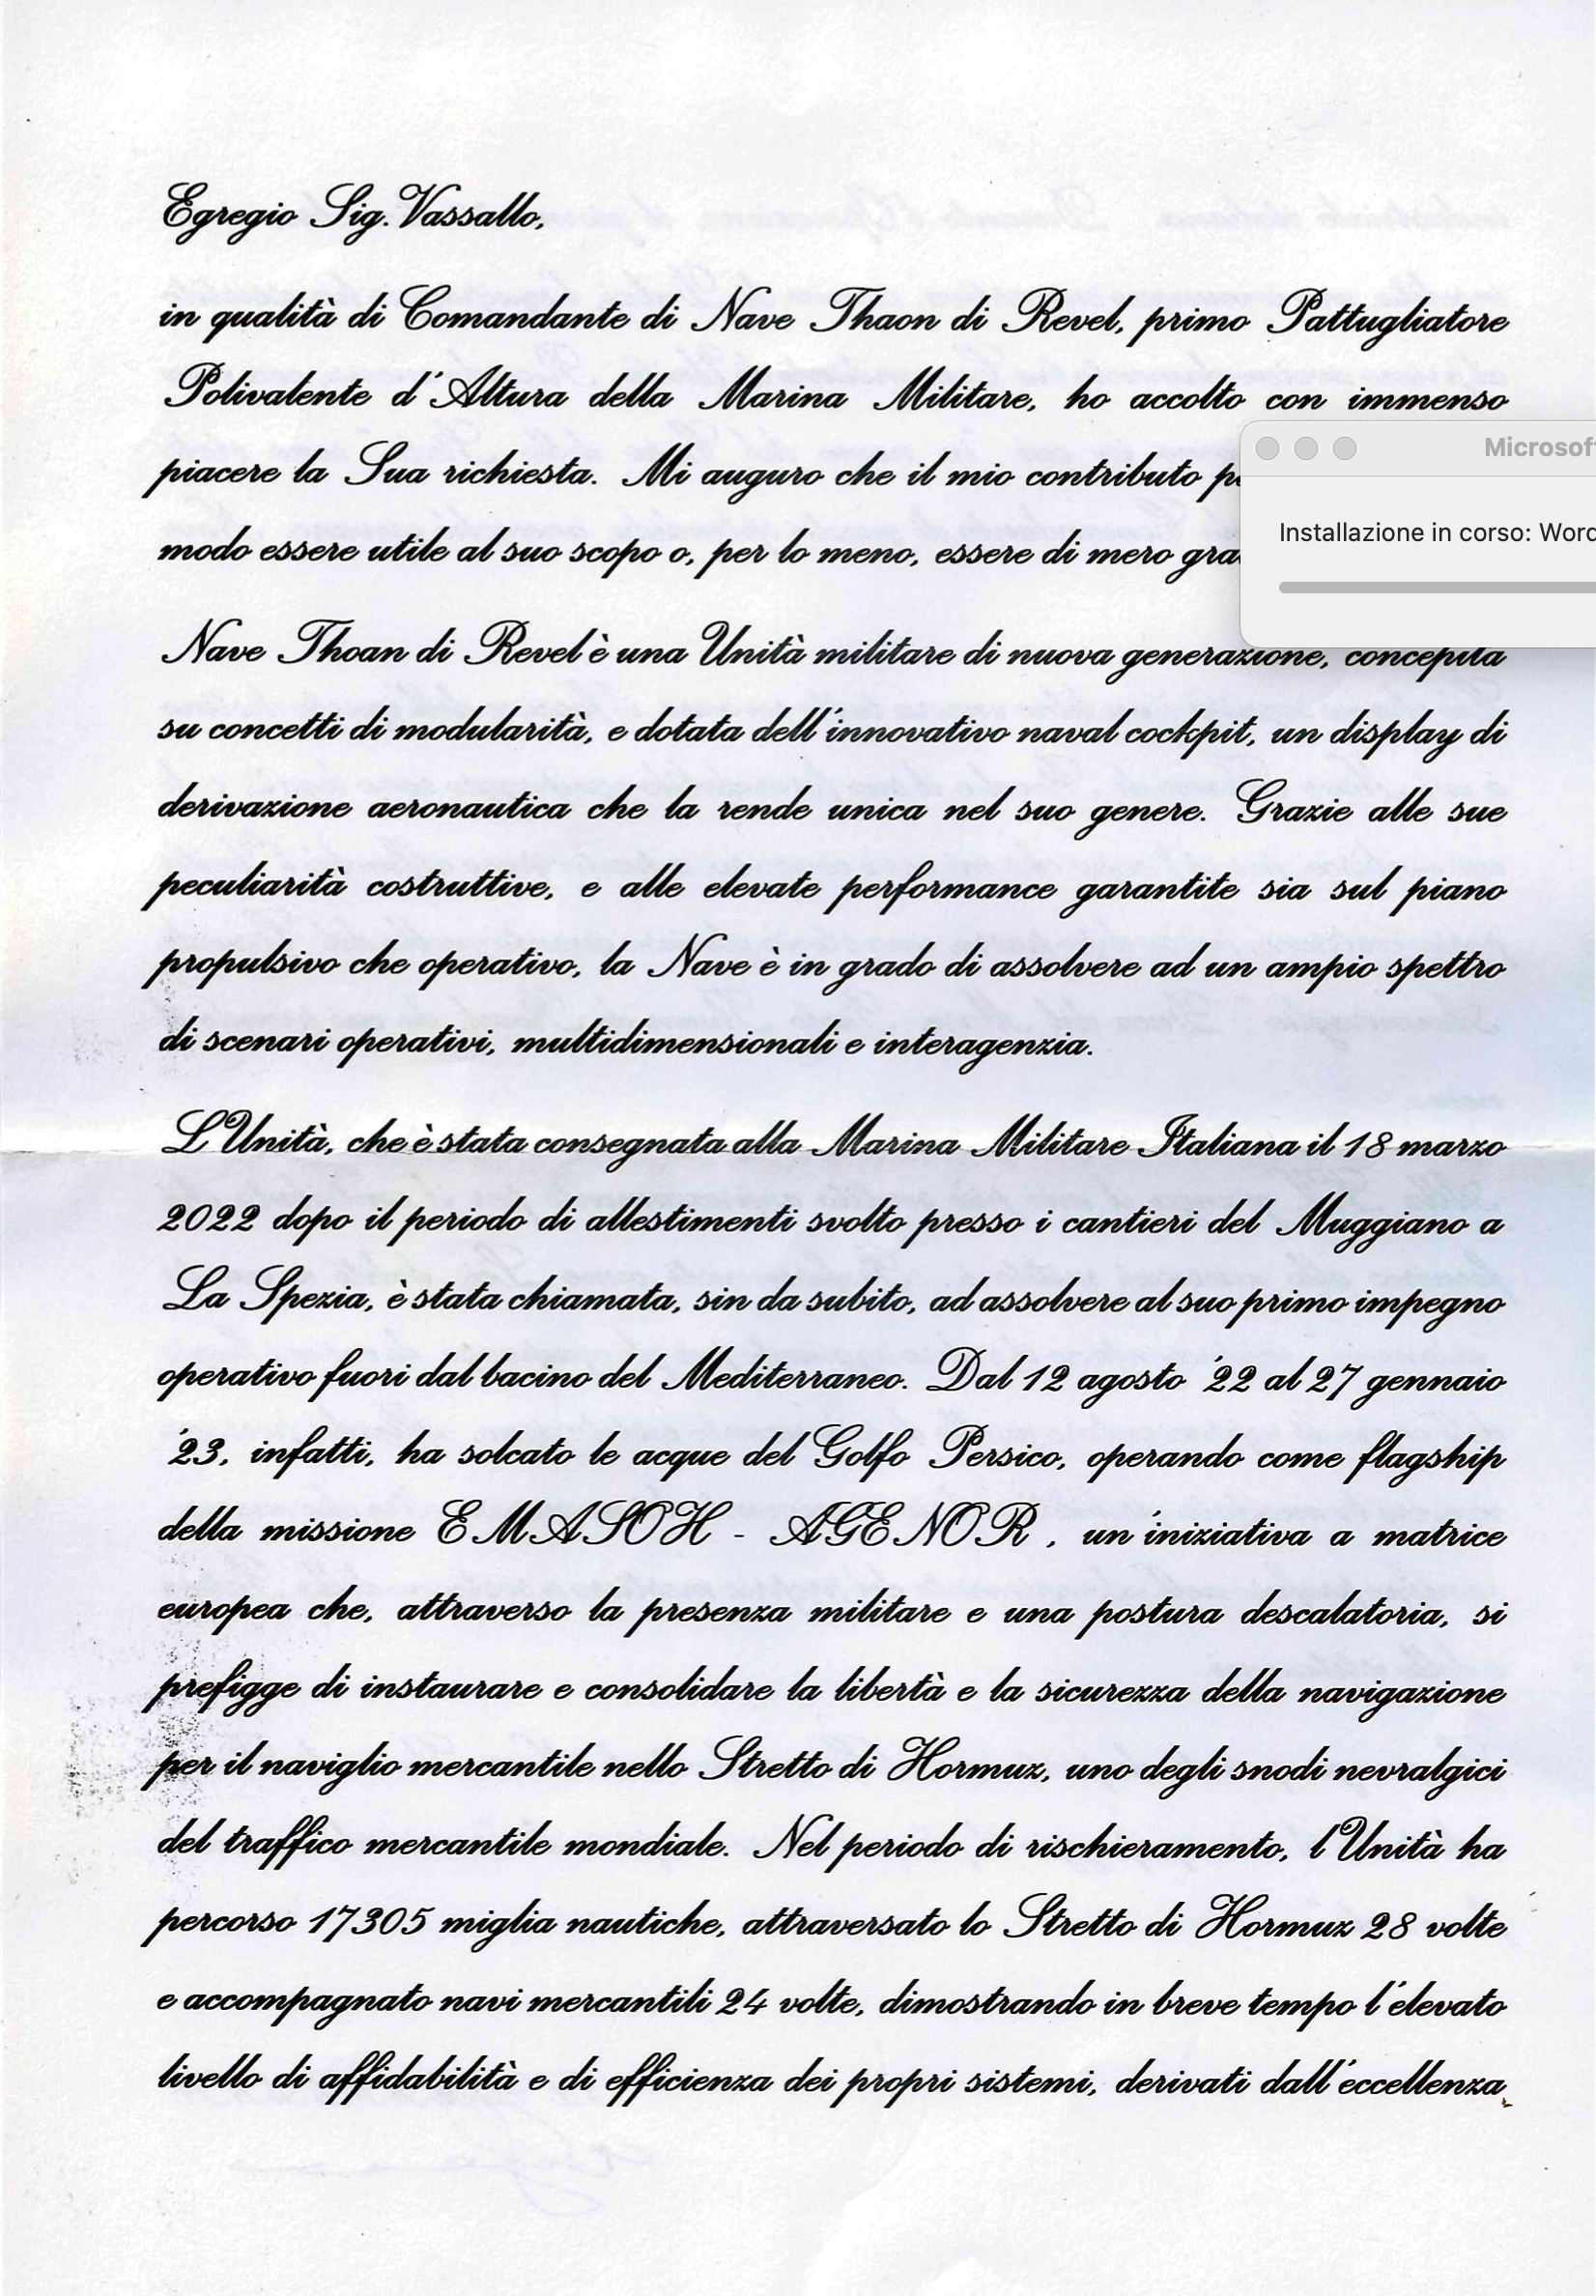 Egregio Sig. Vassallo,
in qualità di Comandante di Nave Thaon di Revel, primo Pattugliatore
Polivalente d'Altura della Marina Militare, ho accolto con immenso
piacere la Sua richiesta. Mi auguro che il mio contributo
modo essere utile al suo scopo o, per lo meno, essere di mero
Microsoft
Installazione in corso: Word
Nave Thoan di Revel è una Unità militare di nuova generazione, concepita
su concetti di modularità, e dotata dell'innovativo naval cockpit, un display di
derivazione aeronautica che la rende unica nel suo genere. Grazie alle sue
peculiarità costruttive, e alle elevate performance garantite sia sul piano
propulsivo che operativo, la Nave è in grado di assolvere ad un ampio spettro
di scenari operativi, multidimensionali e interagenzia.
L'Unità, che è stata consegnata alla Marina Militare Italiana il 18 marzo
2022 dopo il periodo di allestimenti svolto presso i cantieri del Muggiano a
La Spezia, è stata chiamata, sin da subito, ad assolvere al suo primo impegno
operativo fuori dal bacino del Mediterraneo. Dal 12 agosto '22 al 27 gennaio
'23, infatti, ha solcato le acque del Golfo Persico, operando come flagship
della missione EMASOH - AGENOR, un'iniziativa a matrice
europea che, attraverso la presenza militare e una postura descalatoria, si
prefigge di instaurare e consolidare la libertà e la sicurezza della navigazione
per il naviglio mercantile nello Stretto di Hormuz, uno degli snodi nevralgici
del traffico mercantile mondiale. Nel periodo di rischieramento, l'Unità ha
percorso 17305 miglia nautiche, attraversato lo Stretto di Hormuz 28 volte
e accompagnato navi mercantili 24 volte, dimostrando in breve tempo l'elevato
livello di affidabilità e di efficienza dei propri sistemi, derivati dall'eccellenza